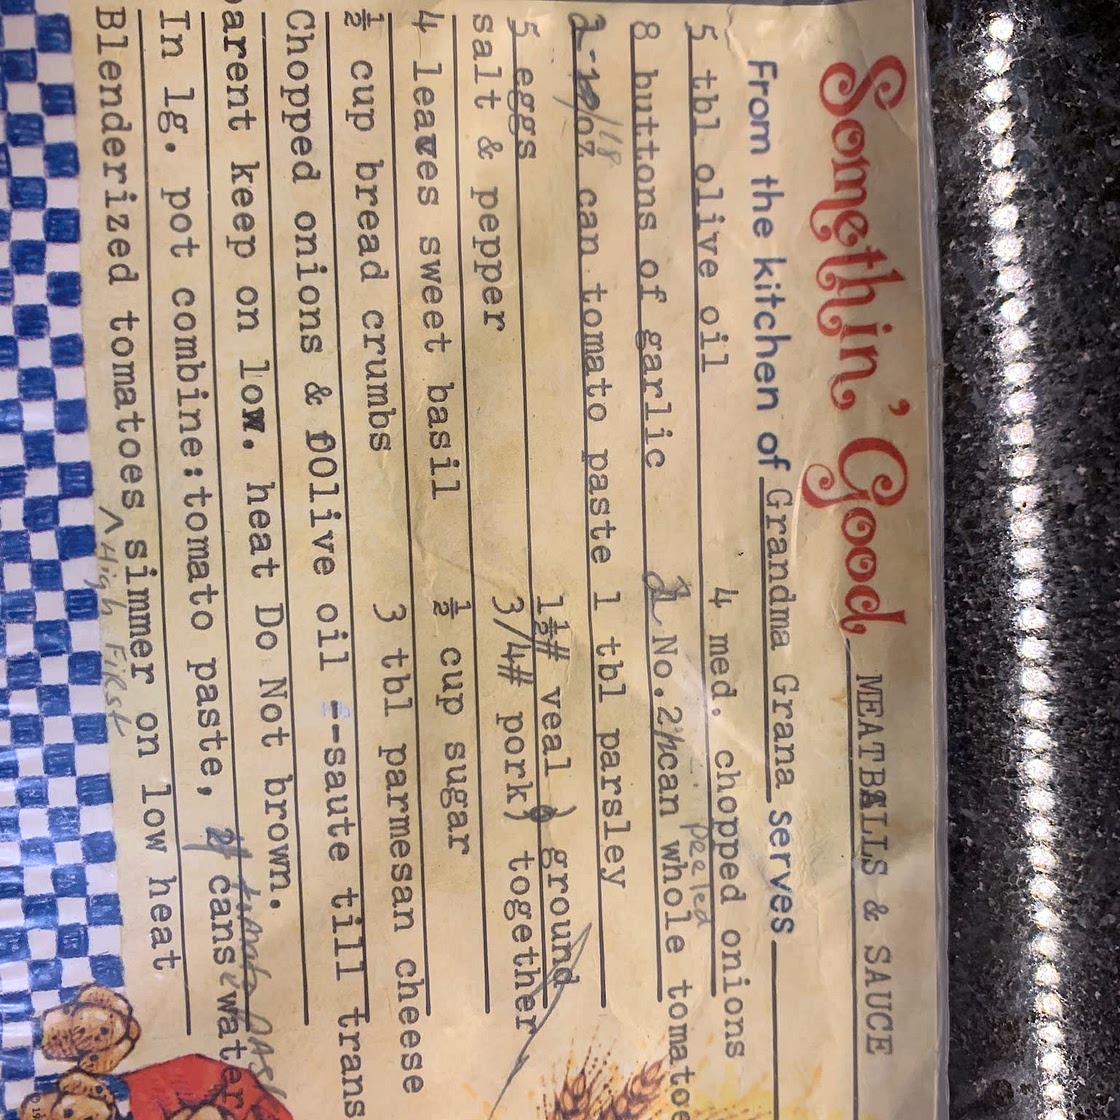 Somethin' Good MEATBALLS & SAUCE
From the kitchen of Grandma Grana serves
5 tbl olive oil 4 med. chopped onions
peeled
8 buttons of garlic 2 No. 2½ can whole tomatoe
18
2- /oz can tomato paste 1 tbl parsley
5 eggs 1½# veal ) ground
salt & pepper 3/4# pork) together
4 leaves sweet basil ½ cup sugar
½ cup bread crumbs 3 tbl parmesan cheese
Chopped onions & Olive oil --saute till trans
arent keep on low. heat Do Not brown.
tomato
In lg. pot combine:tomato paste, cans water
Blenderized tomatoes simmer on low heat
^ High First